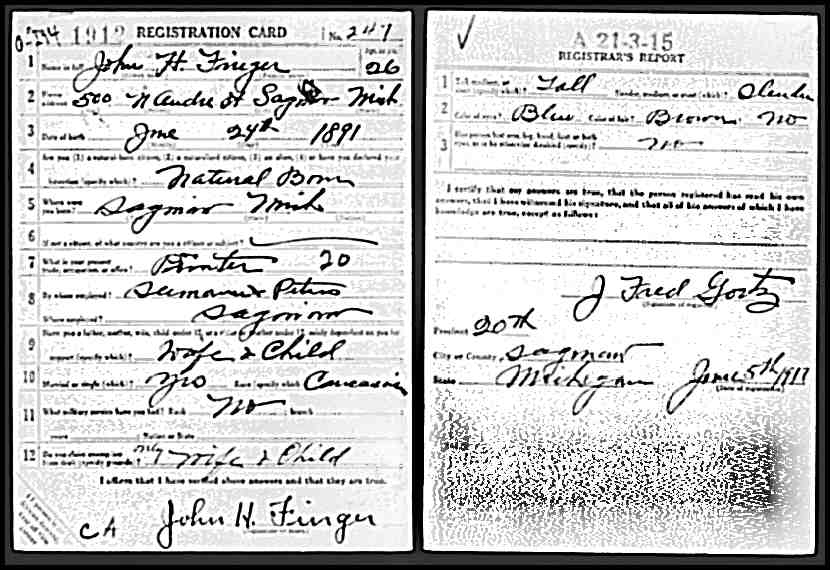 1912 REGISTRATION CARD No. 247
1 Name in full John H. Finger 26
2 Home address 500 N Andre St Saginaw Mich
3 Date of birth June 24th 1891
4 Are you (1) a natural-born citizen, (2) a naturalized citizen, (3) an alien, (4) or have you declared your
intention (specify which)? Natural Born
5 Where were you born? Saginaw Mich
6 If not a citizen, of what country are you a citizen or subject?
7 What is your present trade, occupation, or office? Printer 20
8 By whom employed? Seemann & Peters
Where employed? Saginaw
9 Have you a father, mother, wife, child under 12, or a sister or brother under 12, solely dependent on you for
support (specify which)? Wife & Child
10 Married or single (which)? Yes Race (specify which) Caucasian
11 What military service have you had? Rank No branch
years Nation or State
12 Do you claim exemption from draft (specify grounds)? Wife & Child
I affirm that I have verified above answers and that they are true.
CA John H. Finger
A 21-3-15
REGISTRAR'S REPORT
1 Tall Slender
2 Color of eyes? Blue Color of hair? Brown No
3 Has person lost arm, leg, hand, foot, or both eyes, or is he otherwise disabled (specify)? no
I certify that my answers are true, that the person registered has read his own
answers, that I have witnessed his signature, and that all of his answers of which I have
knowledge are true, except as follows:
J Fred Goetz
Precinct 20th
City or County Saginaw
State Michigan June 5th/1917